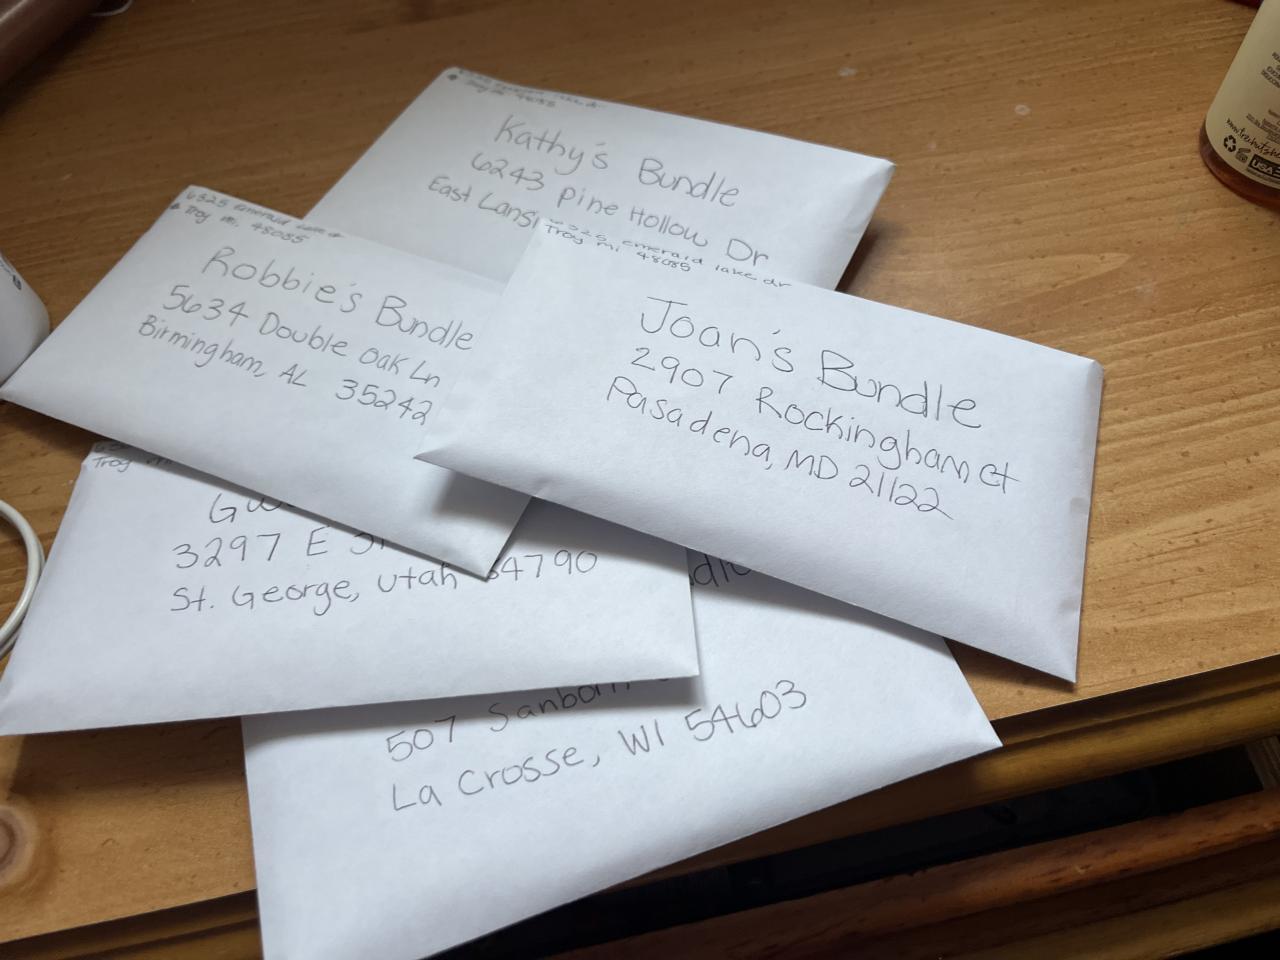 Troy mi 48085
Kathy's Bundle
6243 Pine Hollow Dr
East Lansi
6325 Emerald lake dr
Troy mi, 48085
Robbie's Bundle
5634 Double Oak Ln
Birmingham, AL 35242
6325 emerald lake dr
Troy mi 48085
Joan's Bundle
2907 Rockingham ct
Pasadena, MD 21122
Troy
3297 E
St. George, Utah 84790
507 Sanborn
La Crosse, WI 54603